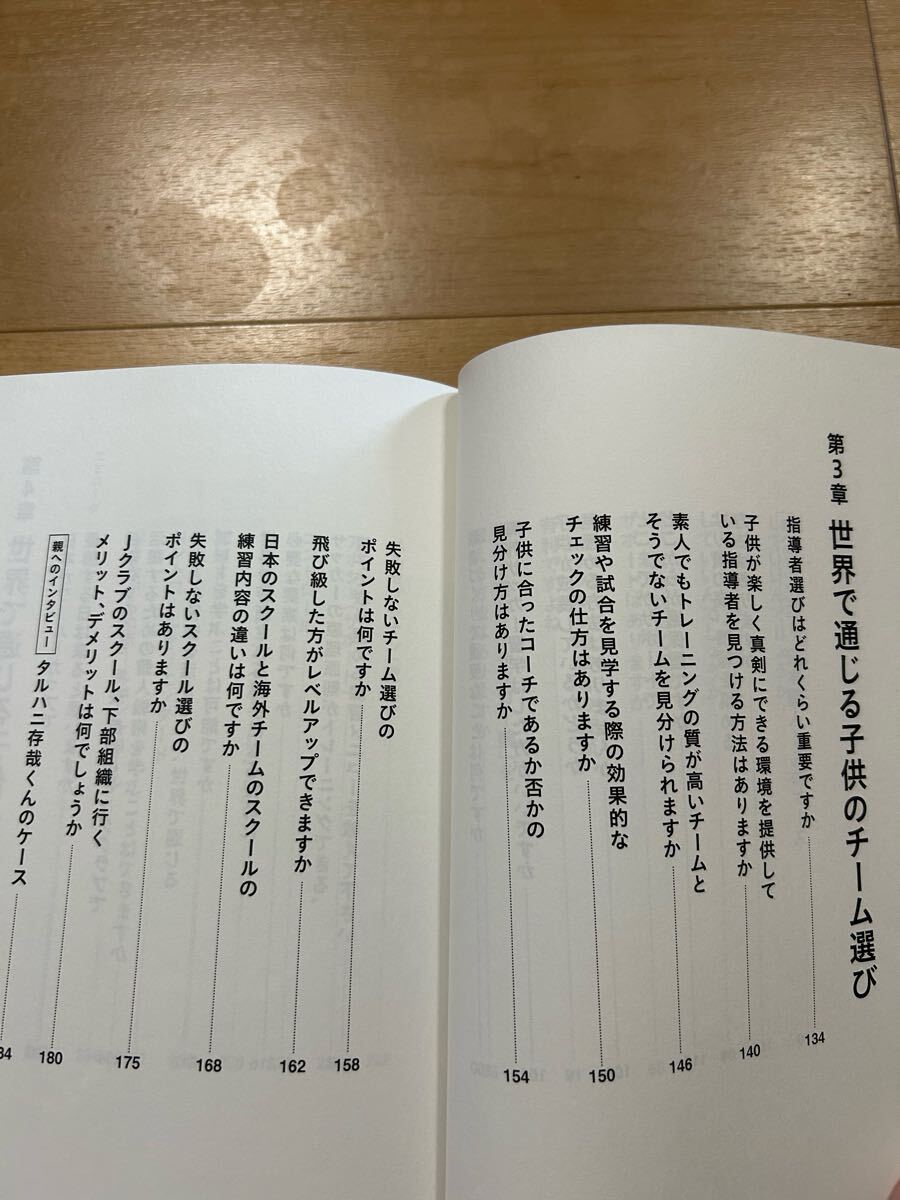 第3章 世界で通じる子供のチーム選び
指導者選びはどれくらい重要ですか 134
子供が楽しく真剣にできる環境を提供して
いる指導者を見つける方法はありますか 140
素人でもトレーニングの質が高いチームと
そうでないチームを見分けられますか 146
練習や試合を見学する際の効果的な
チェックの仕方はありますか 150
子供に合ったコーチであるか否かの
見分け方はありますか 154
失敗しないチーム選びの
ポイントは何ですか 158
飛び級した方がレベルアップできますか 162
日本のスクールと海外チームのスクールの
練習内容の違いは何ですか 168
失敗しないスクール選びの
ポイントはありますか 175
Jクラブのスクール、下部組織に行く
メリット、デメリットは何でしょうか 180
親へのインタビュー タルハニ存哉くんのケース